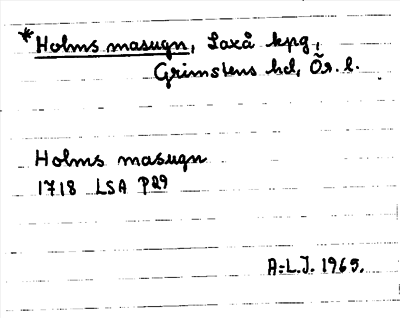 *Holms masugn, Laxå kpg,
Grimstens hd, Ör. l.
Holms masugn
1718 LSA P29
A.-L.J. 1965.